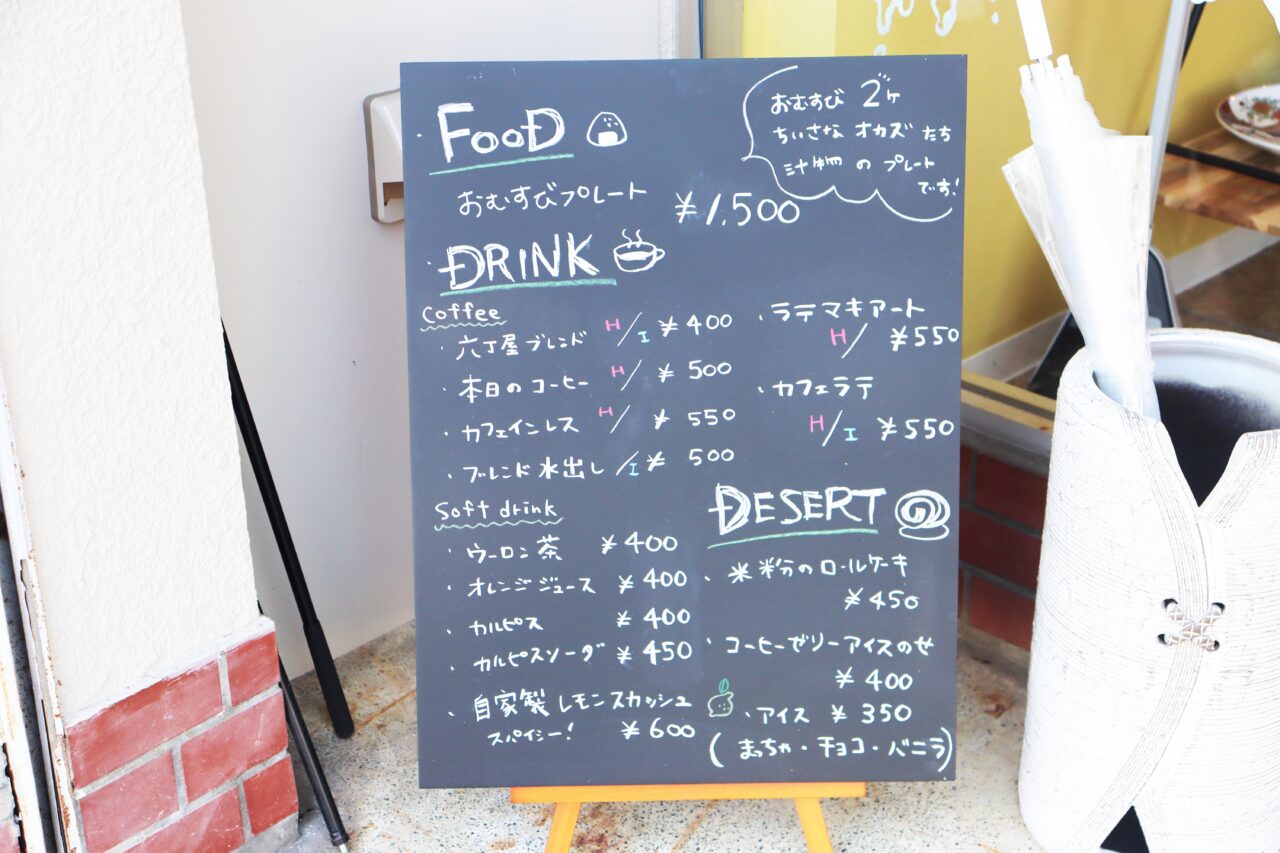 FOOD
おむすびプレート ¥1,500
おむすび 2ヶ
ちいさな オカズ たち
汁物 の プレート
です!
DRINK
Coffee
・六丁屋ブレンド H/I ¥400
・本日のコーヒー H/I ¥500
・カフェインレス H/ ¥550
・ブレンド水出し /I ¥500
・ラテマキアート
H/ ¥550
・カフェラテ
H/I ¥550
Soft drink
・ウーロン茶 ¥400
・オレンジジュース ¥400
・カルピス ¥400
・カルピスソーダ ¥450
・自家製レモンスカッシュ
スパイシー! ¥600
DESERT
・米粉のロールケーキ
¥450
・コーヒーゼリーアイスのせ
¥400
・アイス ¥350
(まっちゃ・チョコ・バニラ)